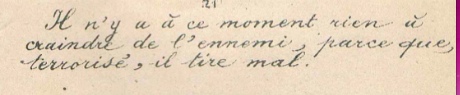 21
Il n'y a à ce moment rien à
craindre de l'ennemi, parce que,
terrorisé, il tire mal.